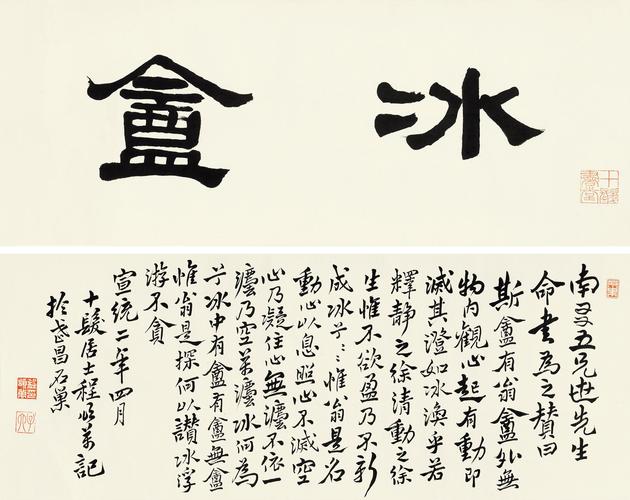 冰盦
南叟五兄世先生
命書為之贊曰
斯盦有翁盦外無
物内觀心起有動即
滅其澄如冰渙乎若
釋靜之徐清動之徐
生惟不欲盈乃不新
成冰兮〻惟翁是名
動心以息照心不滅空
心乃凝住心無灋不依一
灋乃空萬灋冰何為
兮冰中有盦有盦無盦
惟翁是探何以讚冰浮
游不貪
宣統二年四月
十髮居士程頌萬記
於武昌石巢